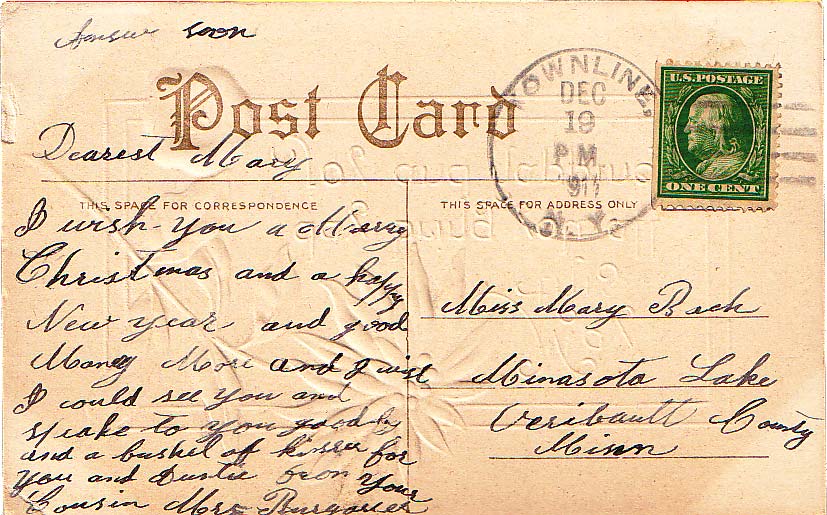 Answer soon
Post Card
TOWNLINE,
DEC
19
P.M.
1911
N.Y.
U.S. POSTAGE
ONE CENT
Dearest Mary
THIS SPACE FOR CORRESPONDENCE
THIS SPACE FOR ADDRESS ONLY
I wish you a Merry
Christmas and a happy
New year and good
Many More and I wish
I could see you and
speake to you good by
and a bushel of kisses for
you and from your
Cousin Mrs
Miss Mary Bech
Minasota Lake
Veribault County
Minn